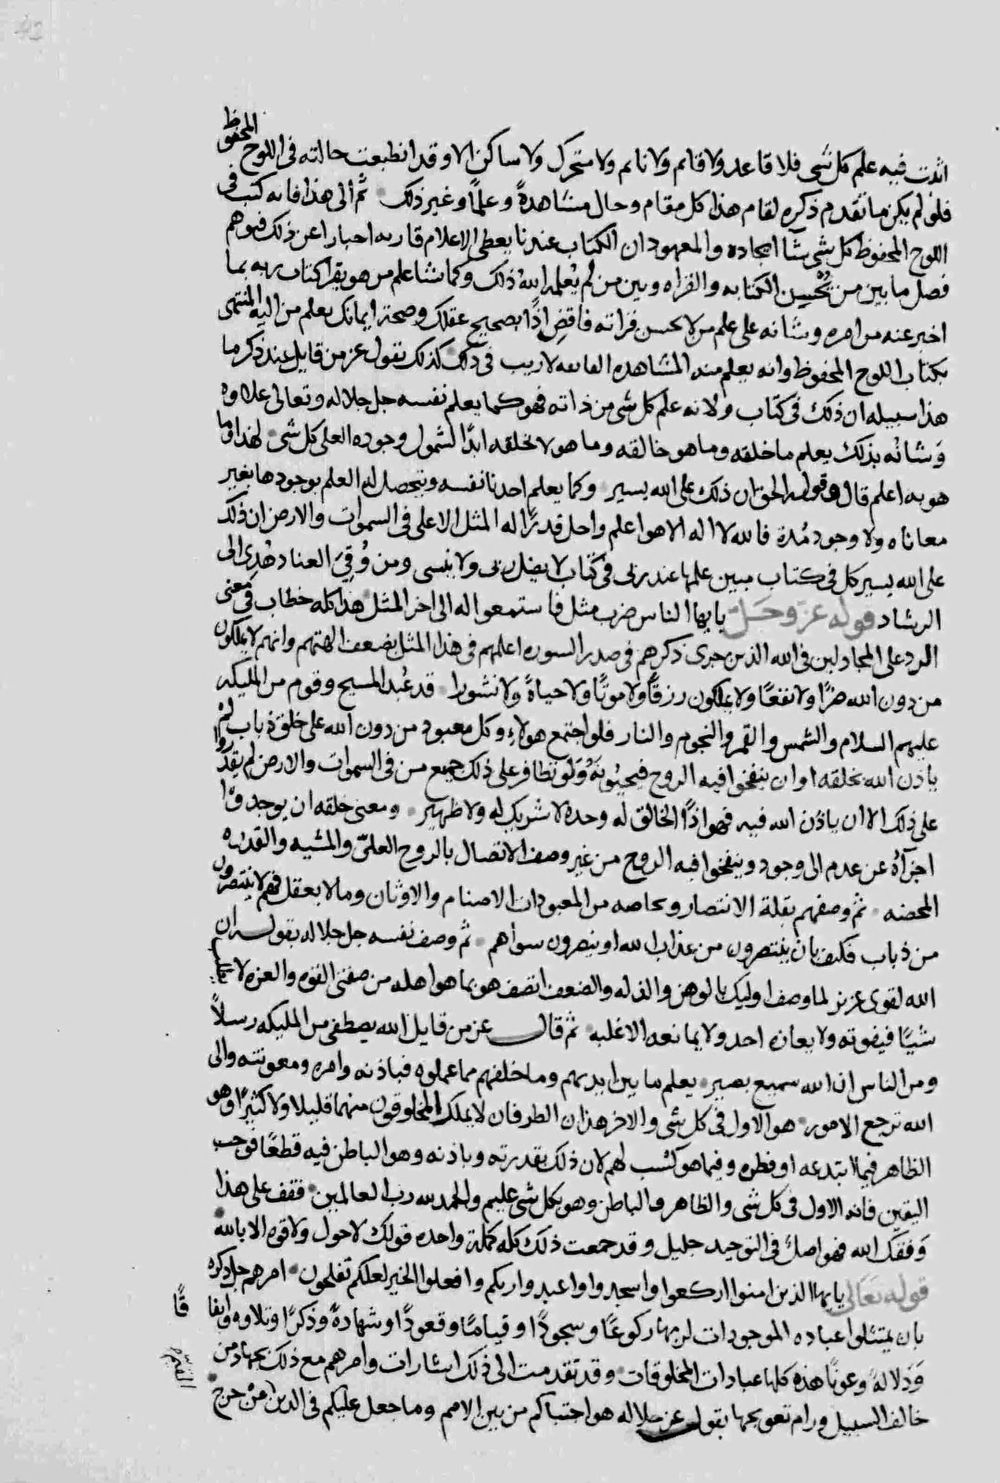 المحفوظ
اثبت فيه علم كل شى فلا قاعد ولا قايم ولا نايم ولا متحرك ولا ساكن الا وقد انطبعت حالته فى اللوح
فلو لم يكن ما تقدم ذكره لقام هذا كل مقام وحال مشاهدةً وعلمًا وغير ذلك ثم الى هذا فانه كتب فى
اللوح المحفوظ كل شى شا ايجاده والمعهود ان الكتاب عندنا يعطى الاعلام قاريه اخبارا عن ذلك فهو هم
فصل ما بين من يُحْسِن الكتابه والقراه وبين من لم يُعْلمه الله ذلك وكما نشا علم من هو يقرا كتاب ربه بما
اخبر عنه من امره وشانه على علم من لا يحسن قراته فاقضِ اذًا بصحيح عقلك وصحة ايمانك بعلم من اليه المنتهى
بكتاب اللوح المحفوظ وانه يعلم منه المشاهده لا ريب فى ذلك كذلك يقول عز من قايل عند ذكر ما
هذا سبيله ان ذلك فى كتاب ولانه علم كل شى من ذاته فهو كما يعلم نفسه جل جلاله وتعالى علاوه
وَشانُه بذلك يعلم ما خلقه وما هو خالقه وما هو لا يخلقه ابدًا لشمول وجوده العلى كل شى لهذا وما
هو به اعلم قال وقوله الحق ان ذلك على الله يسير وكما يعلم احدنا نفسه ويتحصل له العلم بوجودها بغير
معاناه ولا وجود مُدة فالله لا اله الا هو اعلم واجل قدرًا له المثل الاعلى فى السموات والارض ان ذلك
على الله يسير كل فى كتاب مبين علمها عند ربى فى كتاب لا يضل ربى ولا ينسى ومن وُقِىَ العناد هُدِى الى
الرشاد قوله عز وجل يايها الناس ضرب مثل فاستمعوا له الى اخر المثل هذا كله خطاب فى معنى
الرد على المجادلين فى الله الذين جرى ذكرهم فى صدر السوره اعلمهم فى هذا المثل بضعف الهتهم وانهم لا يملكون
من دون الله ضرًا ولا نفعًا ولا يملكون رزقًا ولا موتًا ولا حياةً ولا نشورا قد عُبد المسيح وقوم من المليكه
عليهم السلام والشمس والقمر والنجوم والنار فلو اجتمع هولاءِ وكل معبود من دون الله على خلق ذباب لمْ
ياذن الله بخلقه او ان ينفخوا فيه الروح فيحيُونهُ ولو تظافر على ذلك جميع من فى السموات والارض لم يقدروا
على ذلك الا ان ياذن الله فيه فهو اذًا الخالق له وحده لا شريك له ولا ظهير ومعنى خلقه ان يوجدوا
اجزآهُ عن عدم الى وجود وينفخوا فيه الروح من غير وصف الاتصال بالروح العلىّ والمشيه والقدره
المحضه ثم وصفهم بقلة الانتصار وبخاصه من المعبودات الاصنام والاوثان وما لا يعقل فهم لا ينتصرون
من ذباب فكيف بان ينتصرون من عذاب الله او ينصرون سواهم ثم وصف نفسه جل جلاله بقوله ان
الله لقوى عزيز لما وصف اوليك بالوهن والذله والضعف اتصف هو بما هو اهله من صفتى القوه والعزه لا
شيًا فيفوته ولا يعان احد ولا يمانعه الا غلبه ثم قال عز من قايل الله يصطفى من المليكه رسلاً
ومن الناس ان الله سميع بصير يعلم ما بين ايديهم وما خلفهم مما عملوه فباذنه وامره ومعونته والى
الله ترجع الامور هو الاول فى كل شى والاخر هذان الطرفان لا يملك المخلوقون منهما قليلا ولا كثيرًا وهو
الظاهر فيما ابتدعه او فطره وفيما هو كسْب لهم لان ذلك بقدرته وباذنه وهو الباطن فيه قطعًا فوجب
اليقين فانه الاول فى كل شى والظاهر والباطن وهو بكل شى عليم والحمد لله رب العالمين فقف على هذا
وَفقك الله فهو اصلٌ فى التوحيد جليل وقد جمعت ذلك كله كلمة واحده قولك لا حول ولا قوه الا بالله
قوله تعالى يايها الذين امنوا اركعوا واسجدوا واعبدوا ربكم وافعلوا الخير لعلكم تفلحون امرهم جل ذكره
بان يمتثلوا عباده الموجودات لربها ركوعًا وسجودًا وقيامًا وقعودًا وشهادةً وذكرًا وتلاوه وايفا
قًا
وَذلالةً وعونًا هذه كلها عبادات المخلوقات وقد تقدمت الى ذلك اشارات وامرهم مع ذلك بجهاد من
خالف السبيل ورام تعويجها بقوله عز جلاله هو اجتباكم من بين الامم وما جعل عليكم فى الدين من حرج